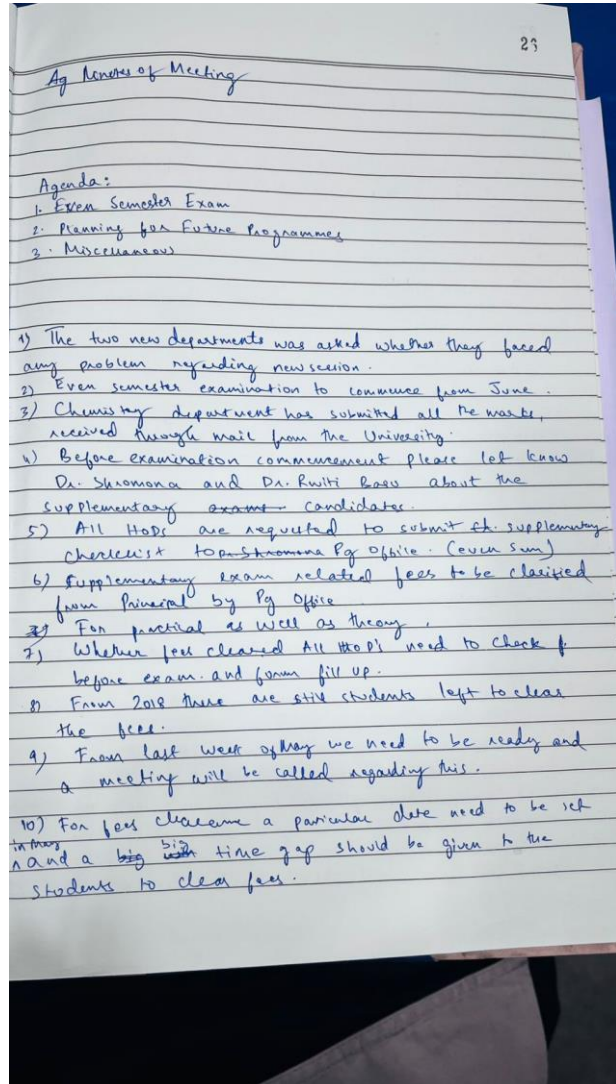 23
Ag Minutes of Meeting
Agenda:
1. Even Semester Exam
2. Planning for Future Programmes
3. Miscellaneous
1) The two new departments was asked whether they faced
any problem regarding new session.
2) Even semester examination to commence from June.
3) Chemistry department has submitted all the marks,
received through mail from the University.
4) Before examination commencement please let know
Dr. Shromona and Dr. Rwiti Basu about the
supplementary exams candidates.
5) All HoDs are requested to submit th. supplementary
checklist to Dr. Shromona Pg Office. (even sem)
6) Supplementary exam related fees to be clarified
from Principal by Pg Office
For practical as well as theory.
7) Whether fees cleared All HoD's need to check
before exam. and form fill up.
8) From 2018 there are still students left to clear
the fees.
9) From last week of May we need to be ready and
a meeting will be called regarding this.
10) For fees clearance a particular date need to be set
in May
and a big big time gap should be given to the
students to clear fees.